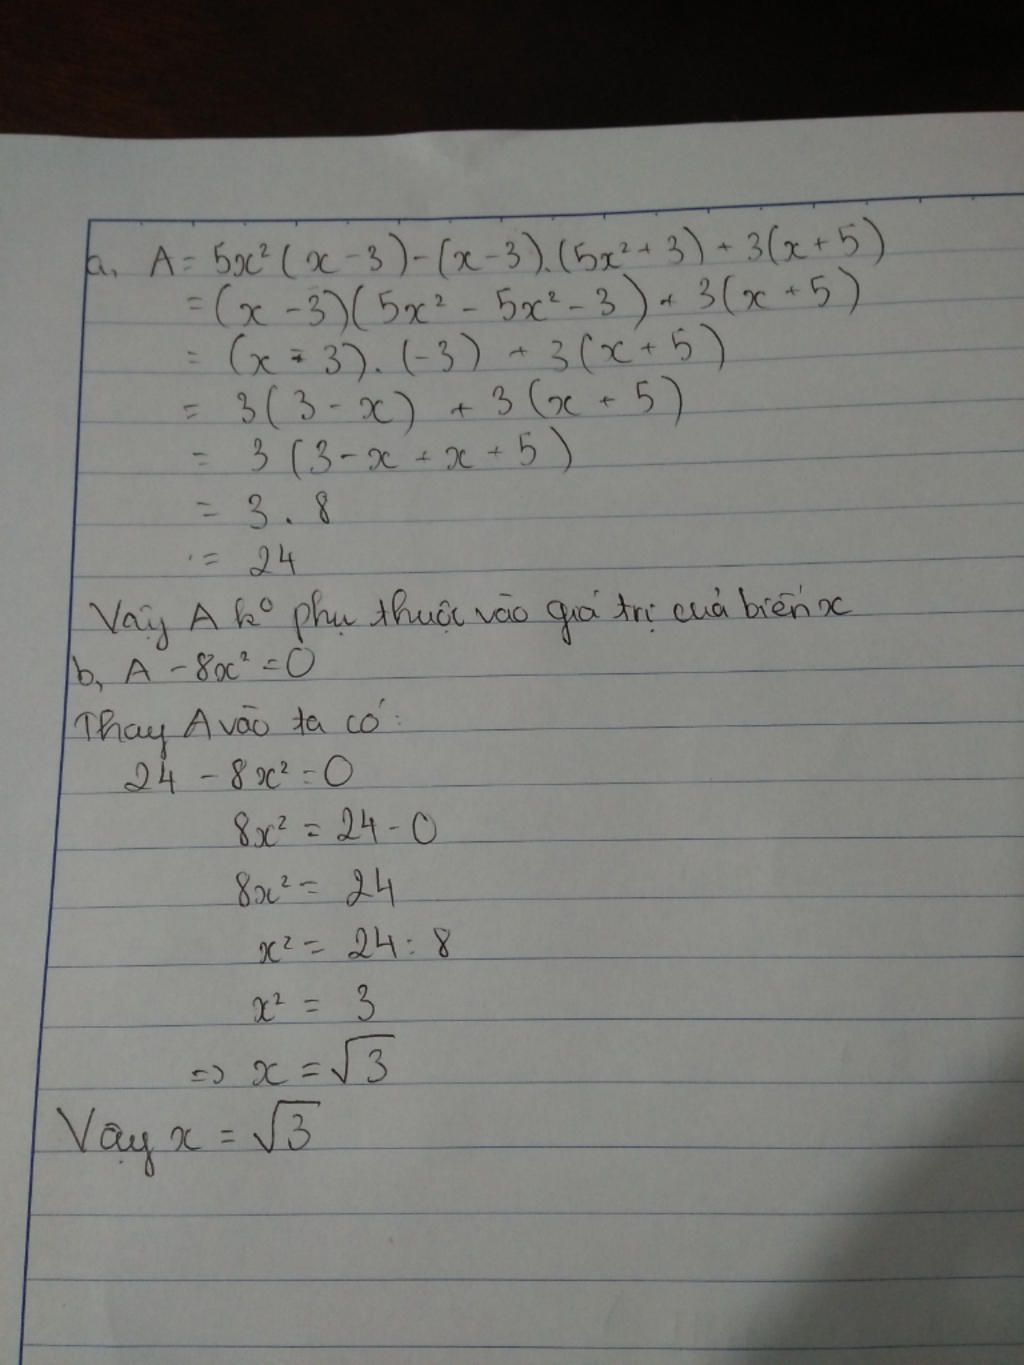 a, A = 5x² (x - 3) - (x - 3).(5x² + 3) + 3(x + 5)
= (x - 3)(5x² - 5x² - 3) + 3(x + 5)
= (x - 3).(-3) + 3(x + 5)
= 3(3 - x) + 3(x + 5)
= 3(3 - x + x + 5)
= 3 . 8
= 24
Vậy A k° phụ thuộc vào giá trị của biến x
b, A - 8x² = 0
Thay A vào ta có:
24 - 8x² = 0
8x² = 24 - 0
8x² = 24
x² = 24 : 8
x² = 3
=> x = √3
Vậy x = √3